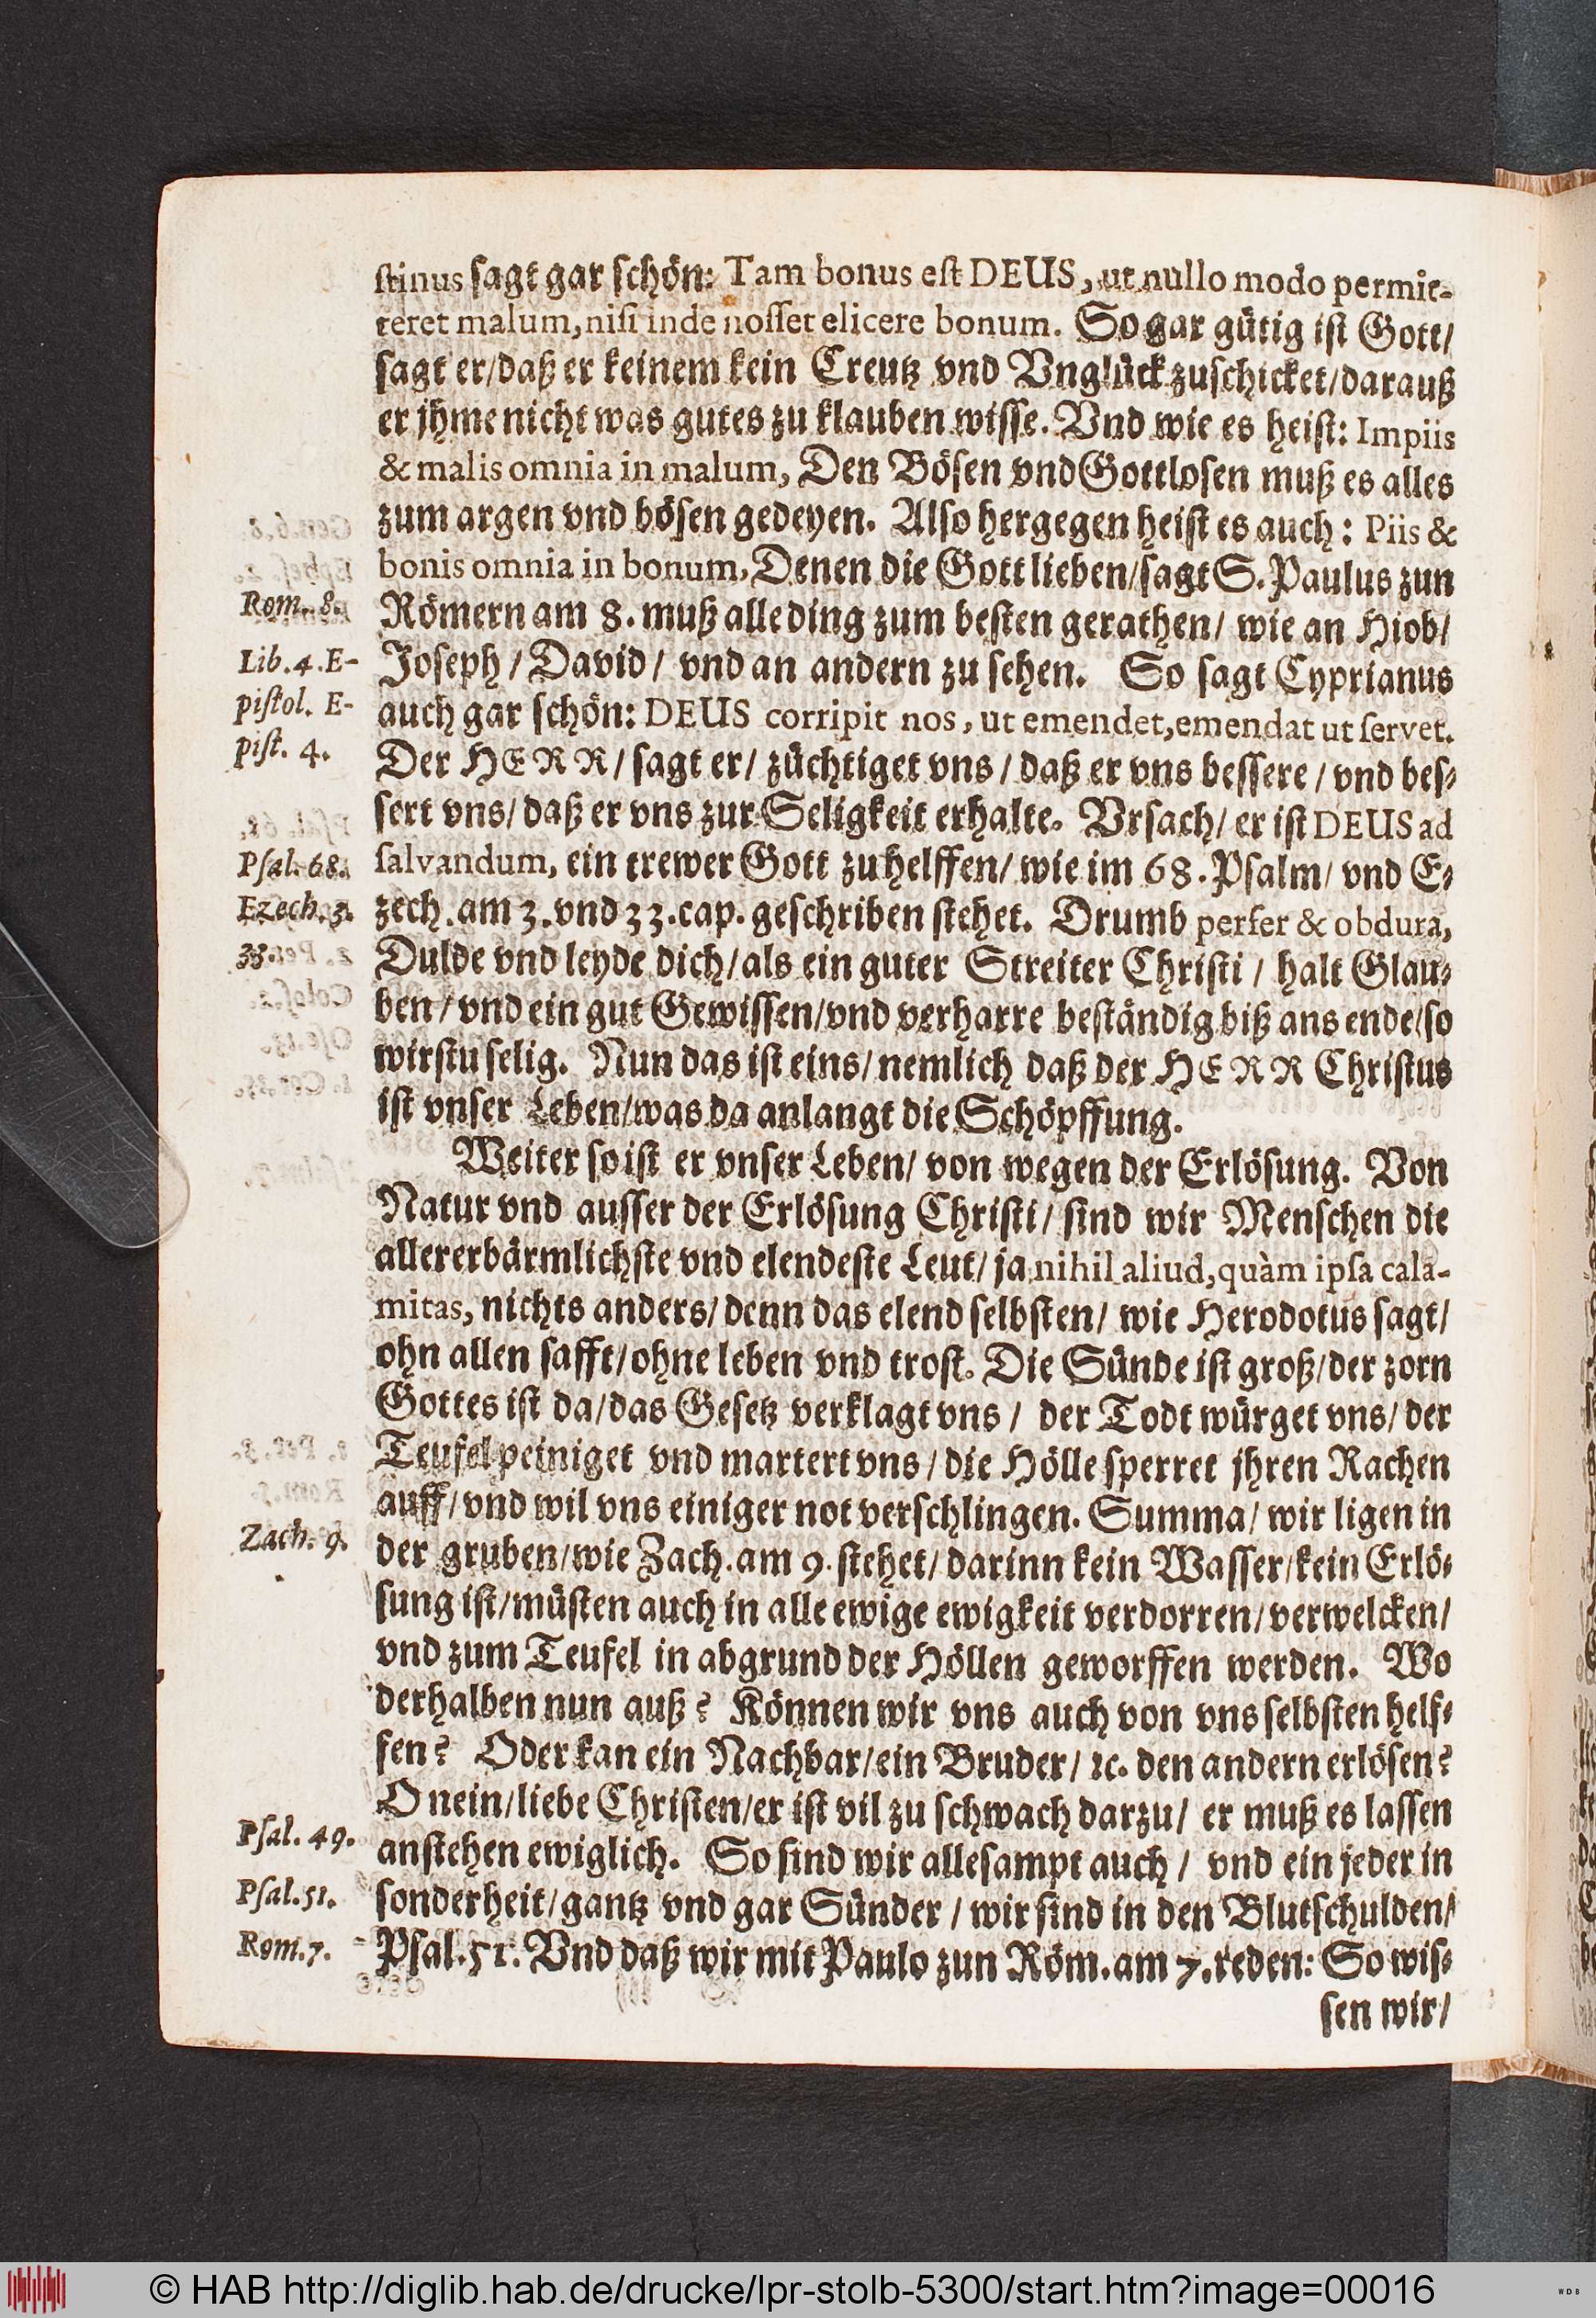 stinus sagt gar schön: Tam bonus est DEUS, ut nullo modo permit-
teret malum, nisi inde nosset elicere bonum. So gar gütig ist Gott/
sagt er/daß er keinem kein Creutz vnd Vnglück zuschicket/darauß
er jhme nicht was gutes zu klauben wisse. Vnd wie es heist: Impiis
& malis omnia in malum, Den Bösen vnd Gottlosen muß es alles
zum argen vnd bösen gedeyen. Also hergegen heist es auch: Piis &
bonis omnia in bonum, Denen die Gott lieben/sagt S. Paulus zun
Rom. 8.
Römern am 8. muß alle ding zum besten gerathen/ wie an Hiob/
Lib. 4. E-
Joseph / David/ vnd an andern zu sehen. So sagt Cyprianus
pistol. E-
auch gar schön: DEUS corripit nos, ut emendet, emendat ut servet.
pist. 4.
Der HERR/ sagt er/ züchtiget vns / daß er vns bessere / vnd bes-
sert vns/ daß er vns zur Seligkeit erhalte. Vrsach/ er ist DEUS ad
Psal. 68.
salvandum, ein trewer Gott zu helffen/ wie im 68. Psalm/ vnd E-
Ezech. 3.
zech. am 3. vnd 33. cap. geschriben stehet. Drumb perfer & obdura,
33.
Dulde vnd leyde dich/als ein guter Streiter Christi / halt Glau-
ben / vnd ein gut Gewissen/vnd verharre beständig biß ans ende/so
wirstu selig. Nun das ist eins/ nemlich daß der HERR Christus
ist vnser Leben/was da anlangt die Schöpffung.
Weiter so ist er vnser Leben/ von wegen der Erlösung. Von
Natur vnd ausser der Erlösung Christi/ sind wir Menschen die
allererbärmlichste vnd elendeste Leut/ ja nihil aliud, quàm ipsa cala-
mitas, nichts anders/ denn das elend selbsten/ wie Herodotus sagt/
ohn allen safft/ohne leben vnd trost. Die Sünde ist groß/der zorn
Gottes ist da/das Gesetz verklagt vns / der Todt würget vns/ der
Teufel peiniget vnd martert vns / die Hölle sperret jhren Rachen
auff/vnd wil vns einiger not verschlingen. Summa/ wir ligen in
Zach. 9.
der gruben/wie Zach. am 9. stehet/ darinn kein Wasser/kein Erlö-
sung ist/müsten auch in alle ewige ewigkeit verdorren/verwelcken/
vnd zum Teufel in abgrund der Höllen geworffen werden. Wo
derhalben nun auß? Können wir vns auch von vns selbsten helf-
fen? Oder kan ein Nachbar/ein Bruder/ ꝛc. den andern erlösen?
O nein/liebe Christen/er ist vil zu schwach darzu/ er muß es lassen
Psal. 49.
anstehen ewiglich. So sind wir allesampt auch / vnd ein jeder in
Psal. 51.
sonderheit/gantz vnd gar Sünder / wir sind in den Blutschulden/
Rom. 7.
Psal. 51. Vnd daß wir mit Paulo zun Röm. am 7. reden: So wis-
sen wir/
© HAB http://diglib.hab.de/drucke/lpr-stolb-5300/start.htm?image=00016
WDB